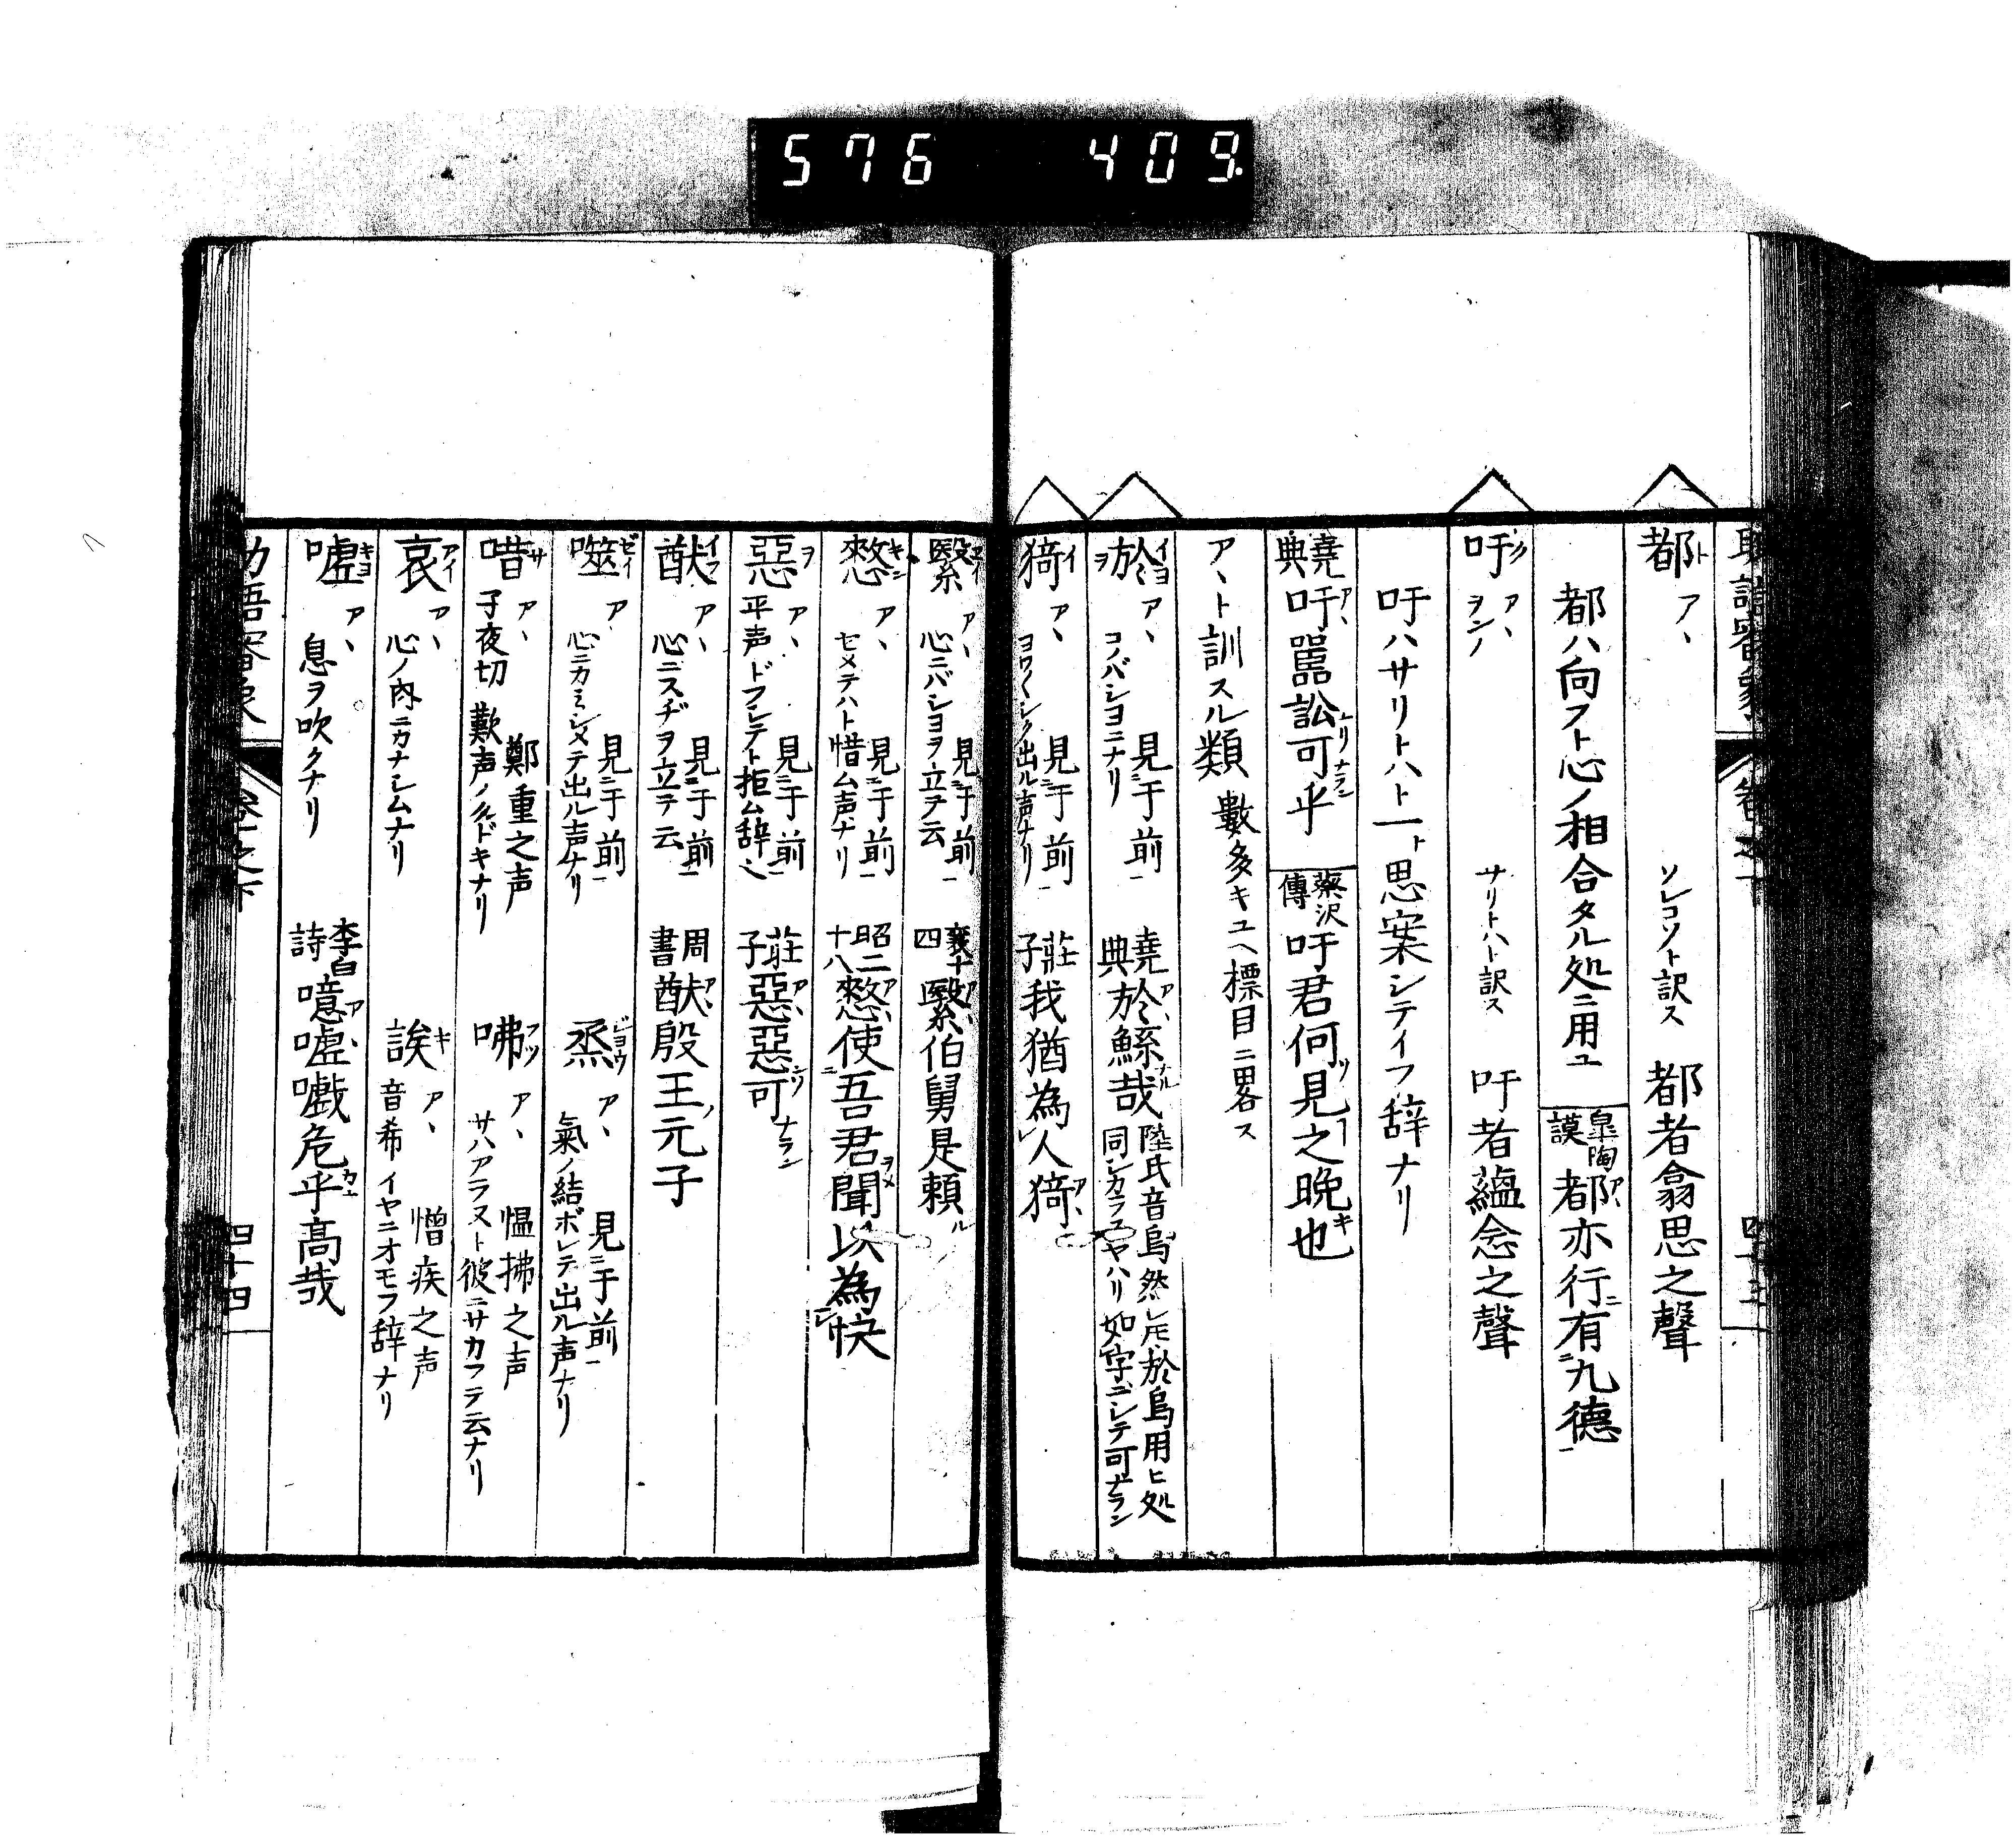 576 409
都ト アヽ ソレコソト訳ス 都者翕思之聲
都ハ向フト心ノ相合タル処ニ用ユ 皐陶謨 都アヽ亦行ニ有二九徳一
吁ク アヽ ヲンノ サリトハト訳ス 吁者蘊念之聲
吁ハサリトハト一ト思案シテイフ辞ナリ
堯典 吁アヽ嚚訟可ナランヤ乎 蔡沢傳 吁君何ソ見之晩キ也
アヽト訓スル類數多キユヘ標目ニ畧ス
於 アヽ コノバショニナリ 見二于前一 堯典 於アヽ鯀哉ナル 陸氏音烏然レ𪜈於烏用ヒ処
同シカラスヤハリ如字ニシテ可ナラン
猗イ アヽ ヨワ〱シク出ル声ナリ 見二于前一 莊子 我猶為レ人猗アヽ
繄エイ アヽ 心ニバショヲ立テ云 見二于前一 襄十四 繄アヽ伯舅是頼ル
憖キン アヽ セメテハト惜ム声ナリ 見二于前一 昭二十八 憖アヽ使二吾君聞一以為レ快
惡ヲ アヽ 平声 ドフシテト拒ム辞也 見二于前一 莊子 惡アヽ惡可ナラン
猷イフ アヽ 心ニスヂヲ立テ云 見二于前一 周書 猷アヽ殷王ノ元子
噬ゼイ アヽ 心ニカミシメテ出ル声ナリ 見二于前一 烝ジョウ アヽ 氣ノ結ボレテ出ル声ナリ 見二于前一
唶サ アヽ 子夜切 歎声ノクドキナリ 鄭重之声 咈フツ アヽ サハアラヌト彼ニサカフテ云ナリ 愠拂之声
哀アイ アヽ 心ノ内ニカナシムナリ 誒キ アヽ 音希 イヤニオモフ辞ナリ 憎疾之声
嘘キョ アヽ 息ヲ吹クナリ 李白詩 噫アヽ嘘嚱危乎高哉
四十四